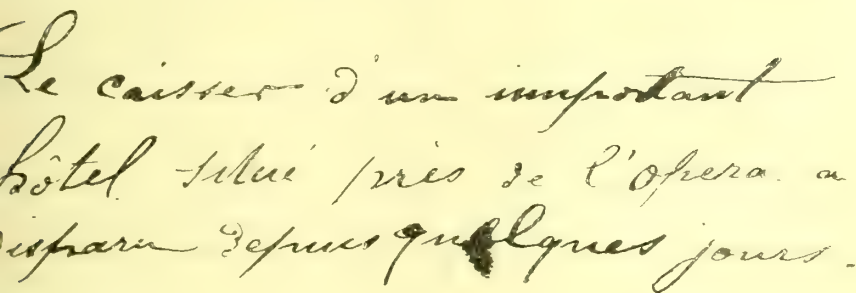 Le caissier d'un important
hôtel situé près de l'Opera a
disparu depuis quelques jours.